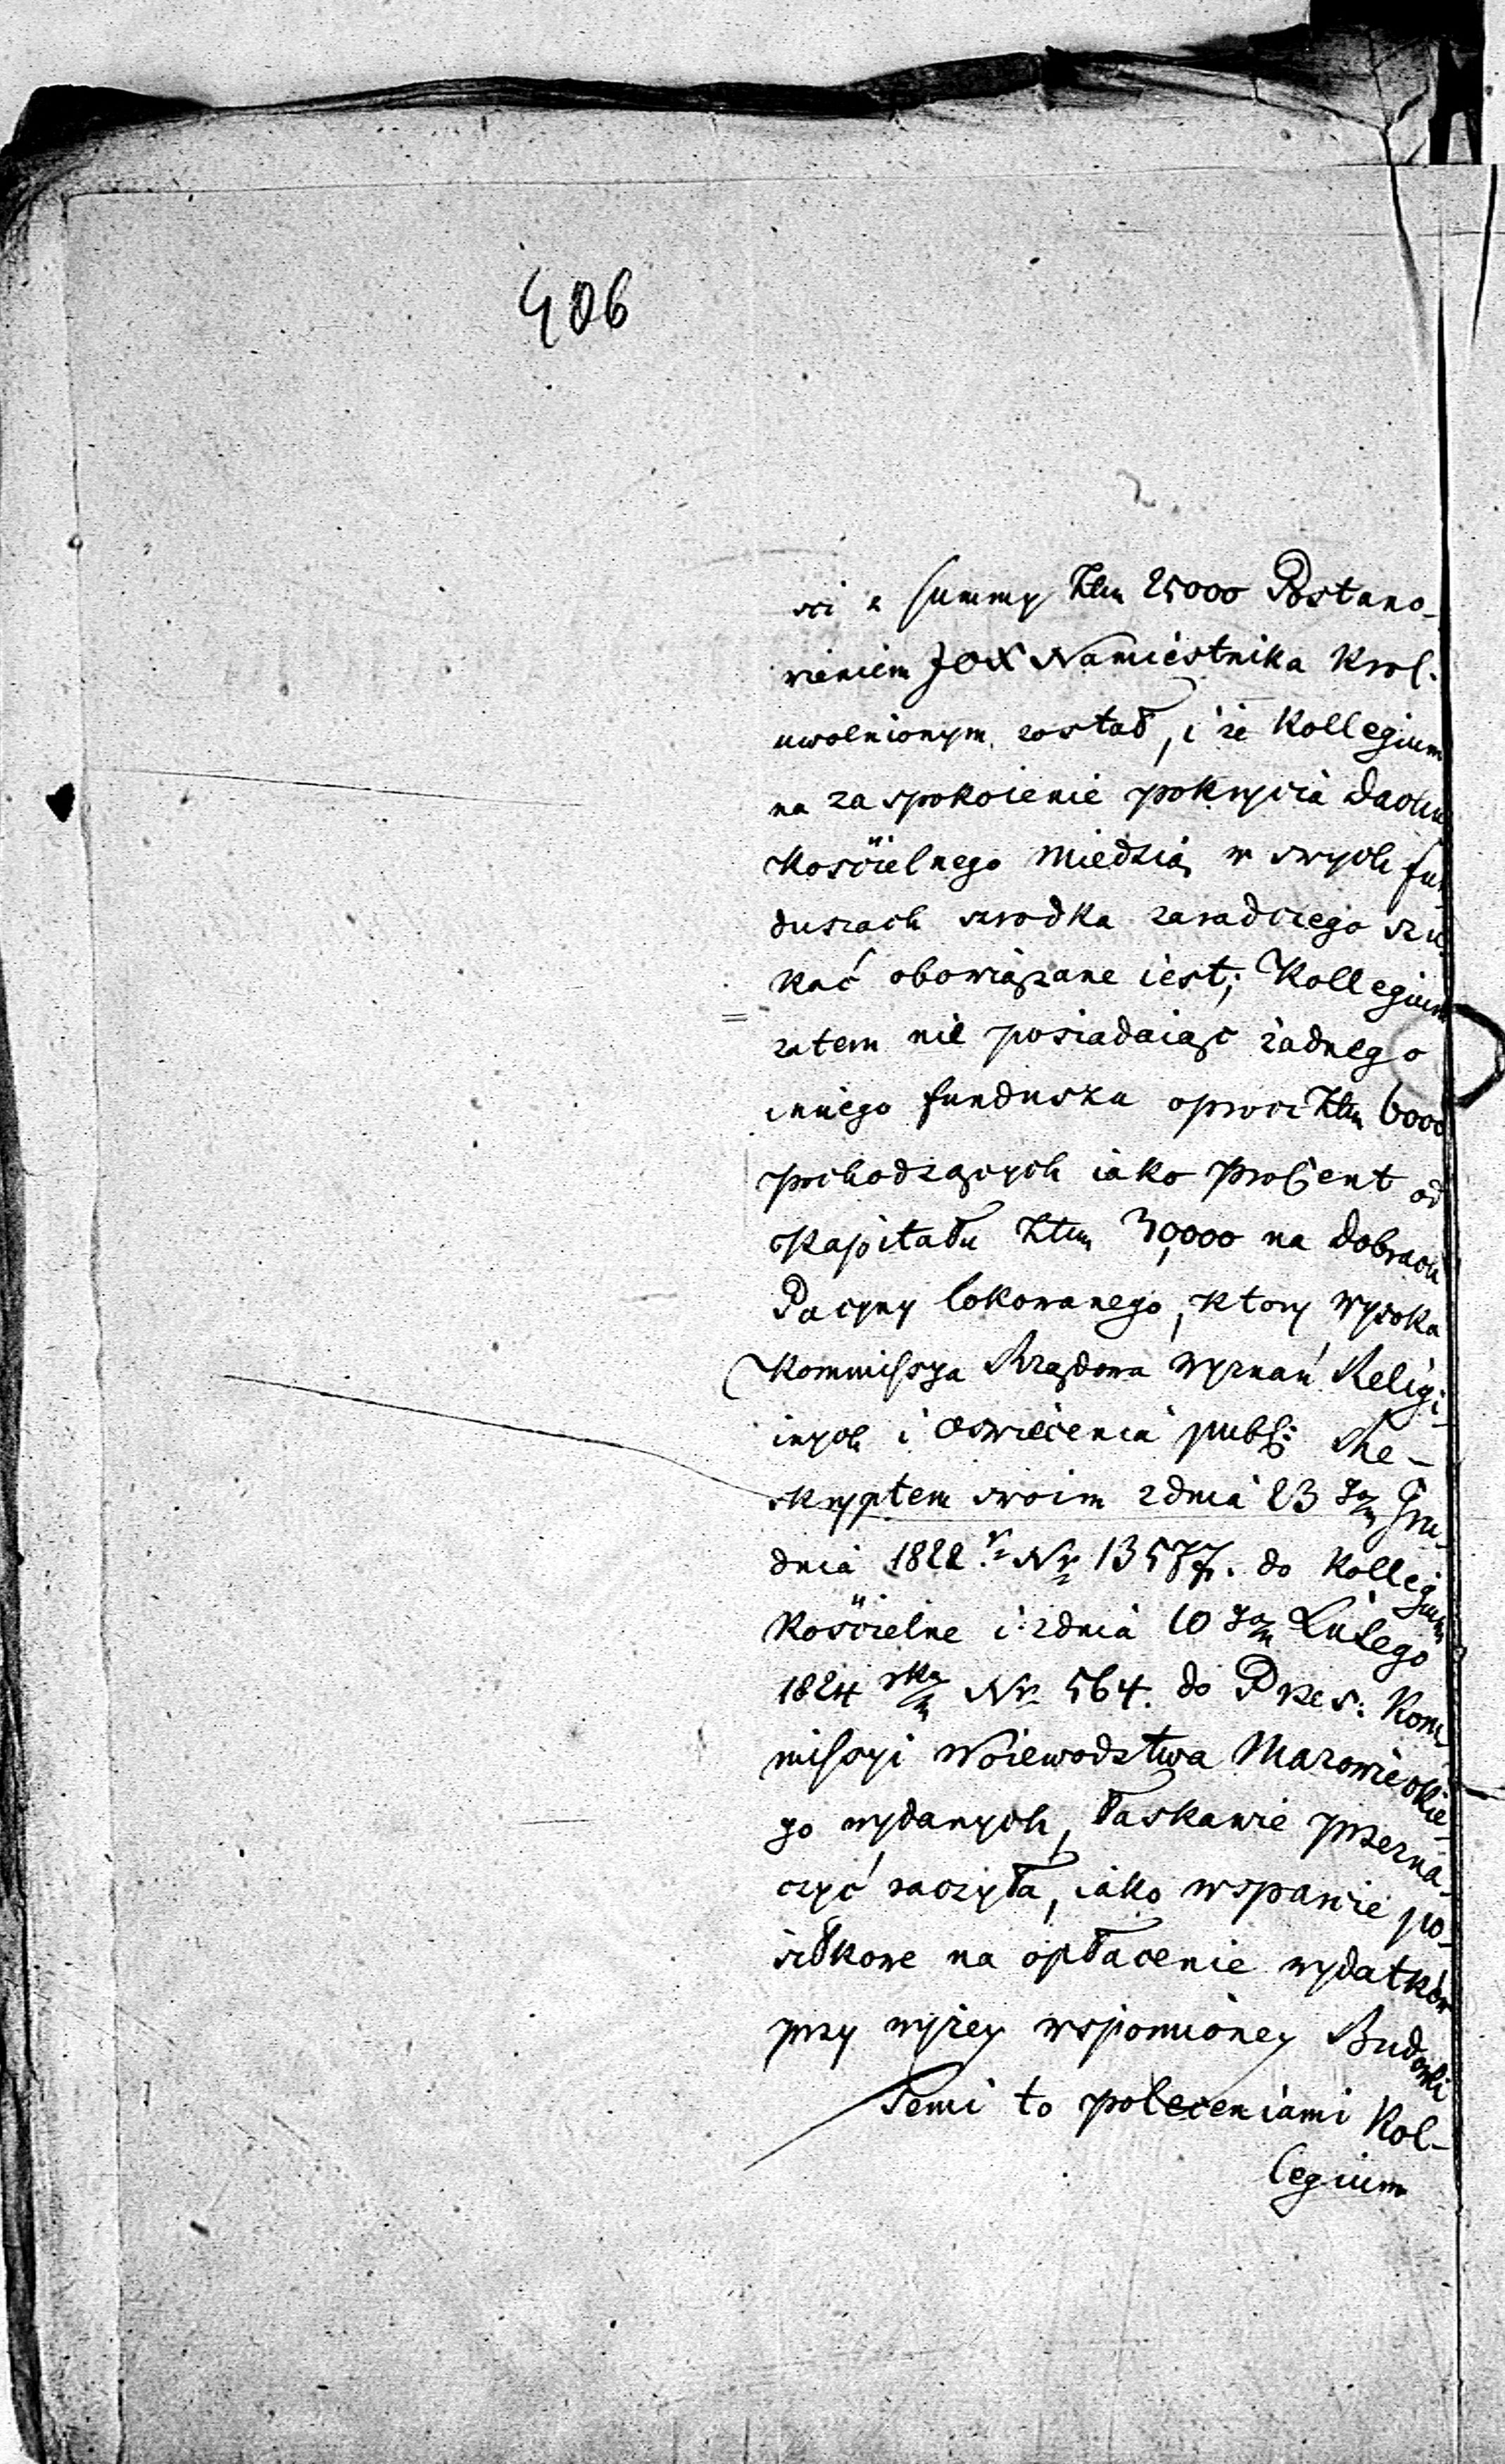 406
ści z summy Złm 25000 Postano-
wieniem JOX Namiestnika Krol.
uwolnionym został, i że Kollegium
na zaspokoienie pokrycia dachu
Kościelnego miedzią w swych fun-
duszach srzodka zaradczego szu-
kać obowiązane iest; Kollegium
zatem nie posiadaiąc żadnego
innego funduszu oprocz Złm 6000
pochodzących iako procent od
Kapitału Złm 30,000 na dobrach
Pacyny lokowanego, ktory wysoka
Kommissya Rządowa Wyznań Religi-
inych i Oswiecenia publ: Re-
skryptem swoim z dnia 23 go Gru-
dnia 1822 r. Nr 13577. do Kollegium
Kościelne i z dnia 10 go Lutego
1824 rku Nr 564. do Prezes: Kom
missyi Woiewodztwa Mazowieckie-
go wydanych, łaskawie przezna-
czyć raczyła, iako wsparcie po-
siłkowe na opłacenie wydatków
przy wyżey wspomioney Budowli
Temi to poleceniami Kol-
legium